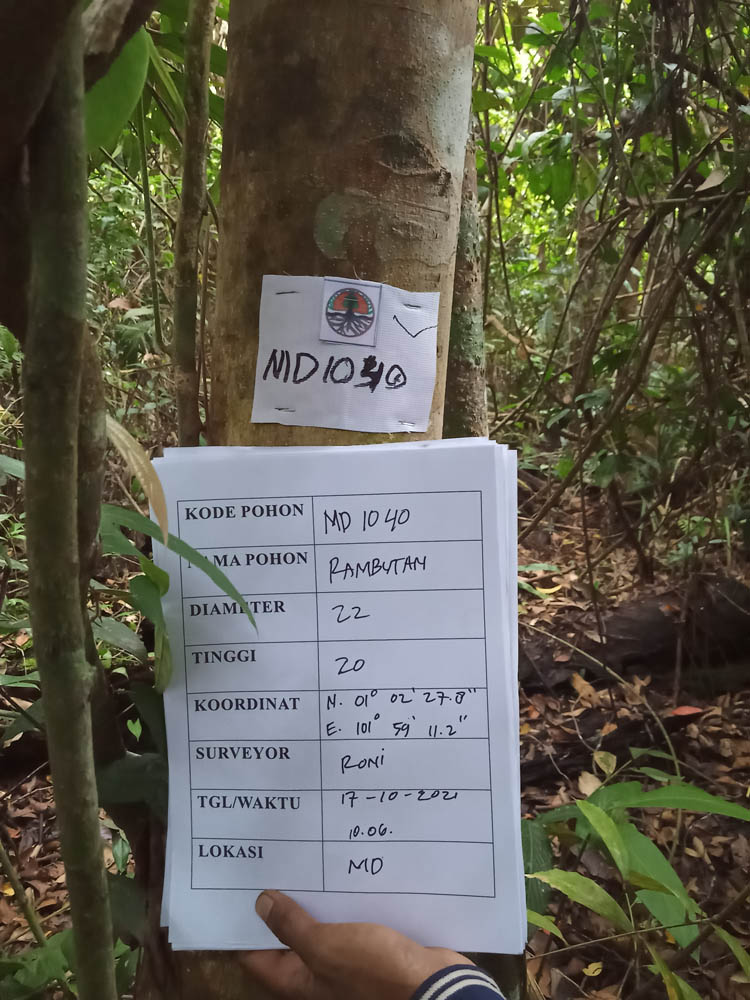 MD1040
KODE POHON MD 1040
NAMA POHON RAMBUTAN
DIAMETER 22
TINGGI 20
KOORDINAT N. 01° 02' 27.8"
E. 101° 59' 11.2"
SURVEYOR RONI
TGL/WAKTU 17-10-2021
10.06.
LOKASI MD